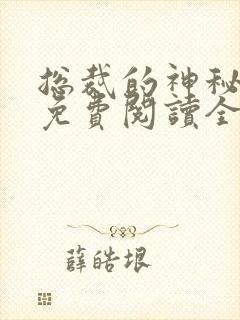 总裁的神秘
免費閱讀全
薛皓垠